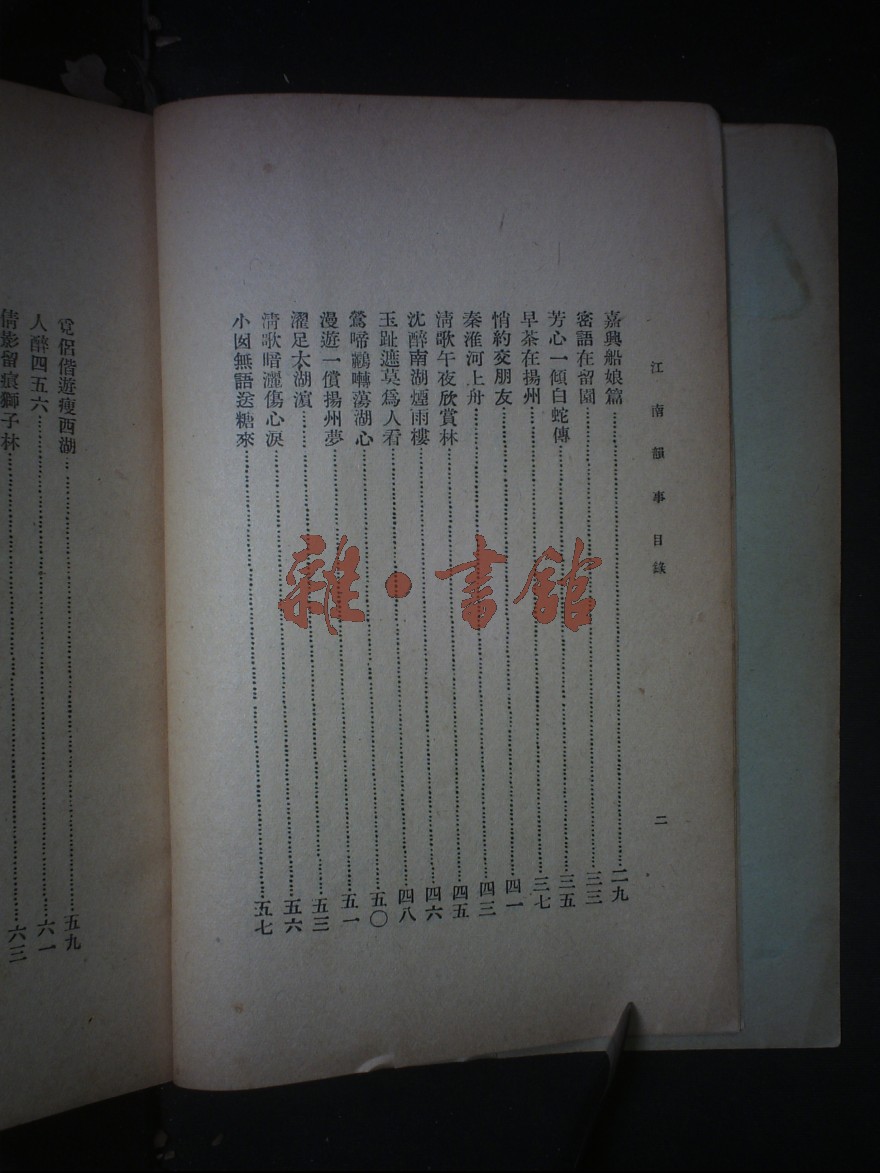 江南韻事目錄
二
嘉興船娘篇……二九
密語在留園……三三
芳心一傾白蛇傳……三五
早茶在揚州……三七
悄約交朋友……四一
秦淮河上舟……四三
清歌午夜欣賞林……四五
沈醉南湖煙雨樓……四六
玉趾遮莫為人看……四八
鶯啼鸝囀蕩湖心……五〇
漫遊一償揚州夢……五一
濯足太湖濱……五三
清歌暗灑傷心淚……五六
小囡無語送糖來……五七
侶偕遊瘦西湖……五九
人醉四五六……六一
倩影留痕獅子林……六三
雜·書館